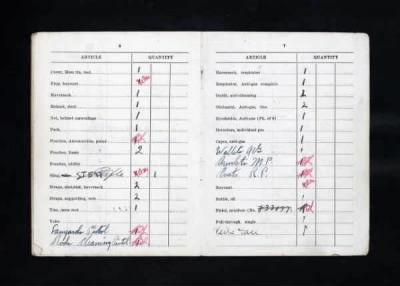 6
ARTICLE QUANTITY
Cover, Mess tin, web. 1
Frog, bayonet
Haversack 1
Helmet, steel 1
Net, helmet camouflage 1
Pack 1
Pouches, Ammunition, pistol
Pouches, Basic 2
Pouches, utility
Sling Rifle 1
Straps, shoulder, haversack 2
Straps, supporting, web 2
Tins, mess rect 1
Tube
Lanyards Pistol
Rods Cleaning Pistol
7
ARTICLE QUANTITY
Haversack, respirator 1
Respirator, Anti-gas complete 1
Outfit, anti-dimming 1
Ointment, Anti-gas, tins 2
Eyeshields, Anti-gas (Pk. of 6) 1
Detectors, individual prs 1
Capes, anti-gas 1
Wallets A/G 1
Armlets M.P.
Coats R.P.
Bayonet
Bottle, oil 1
Pistol, revolver (No.
Pull-through, single 1
1